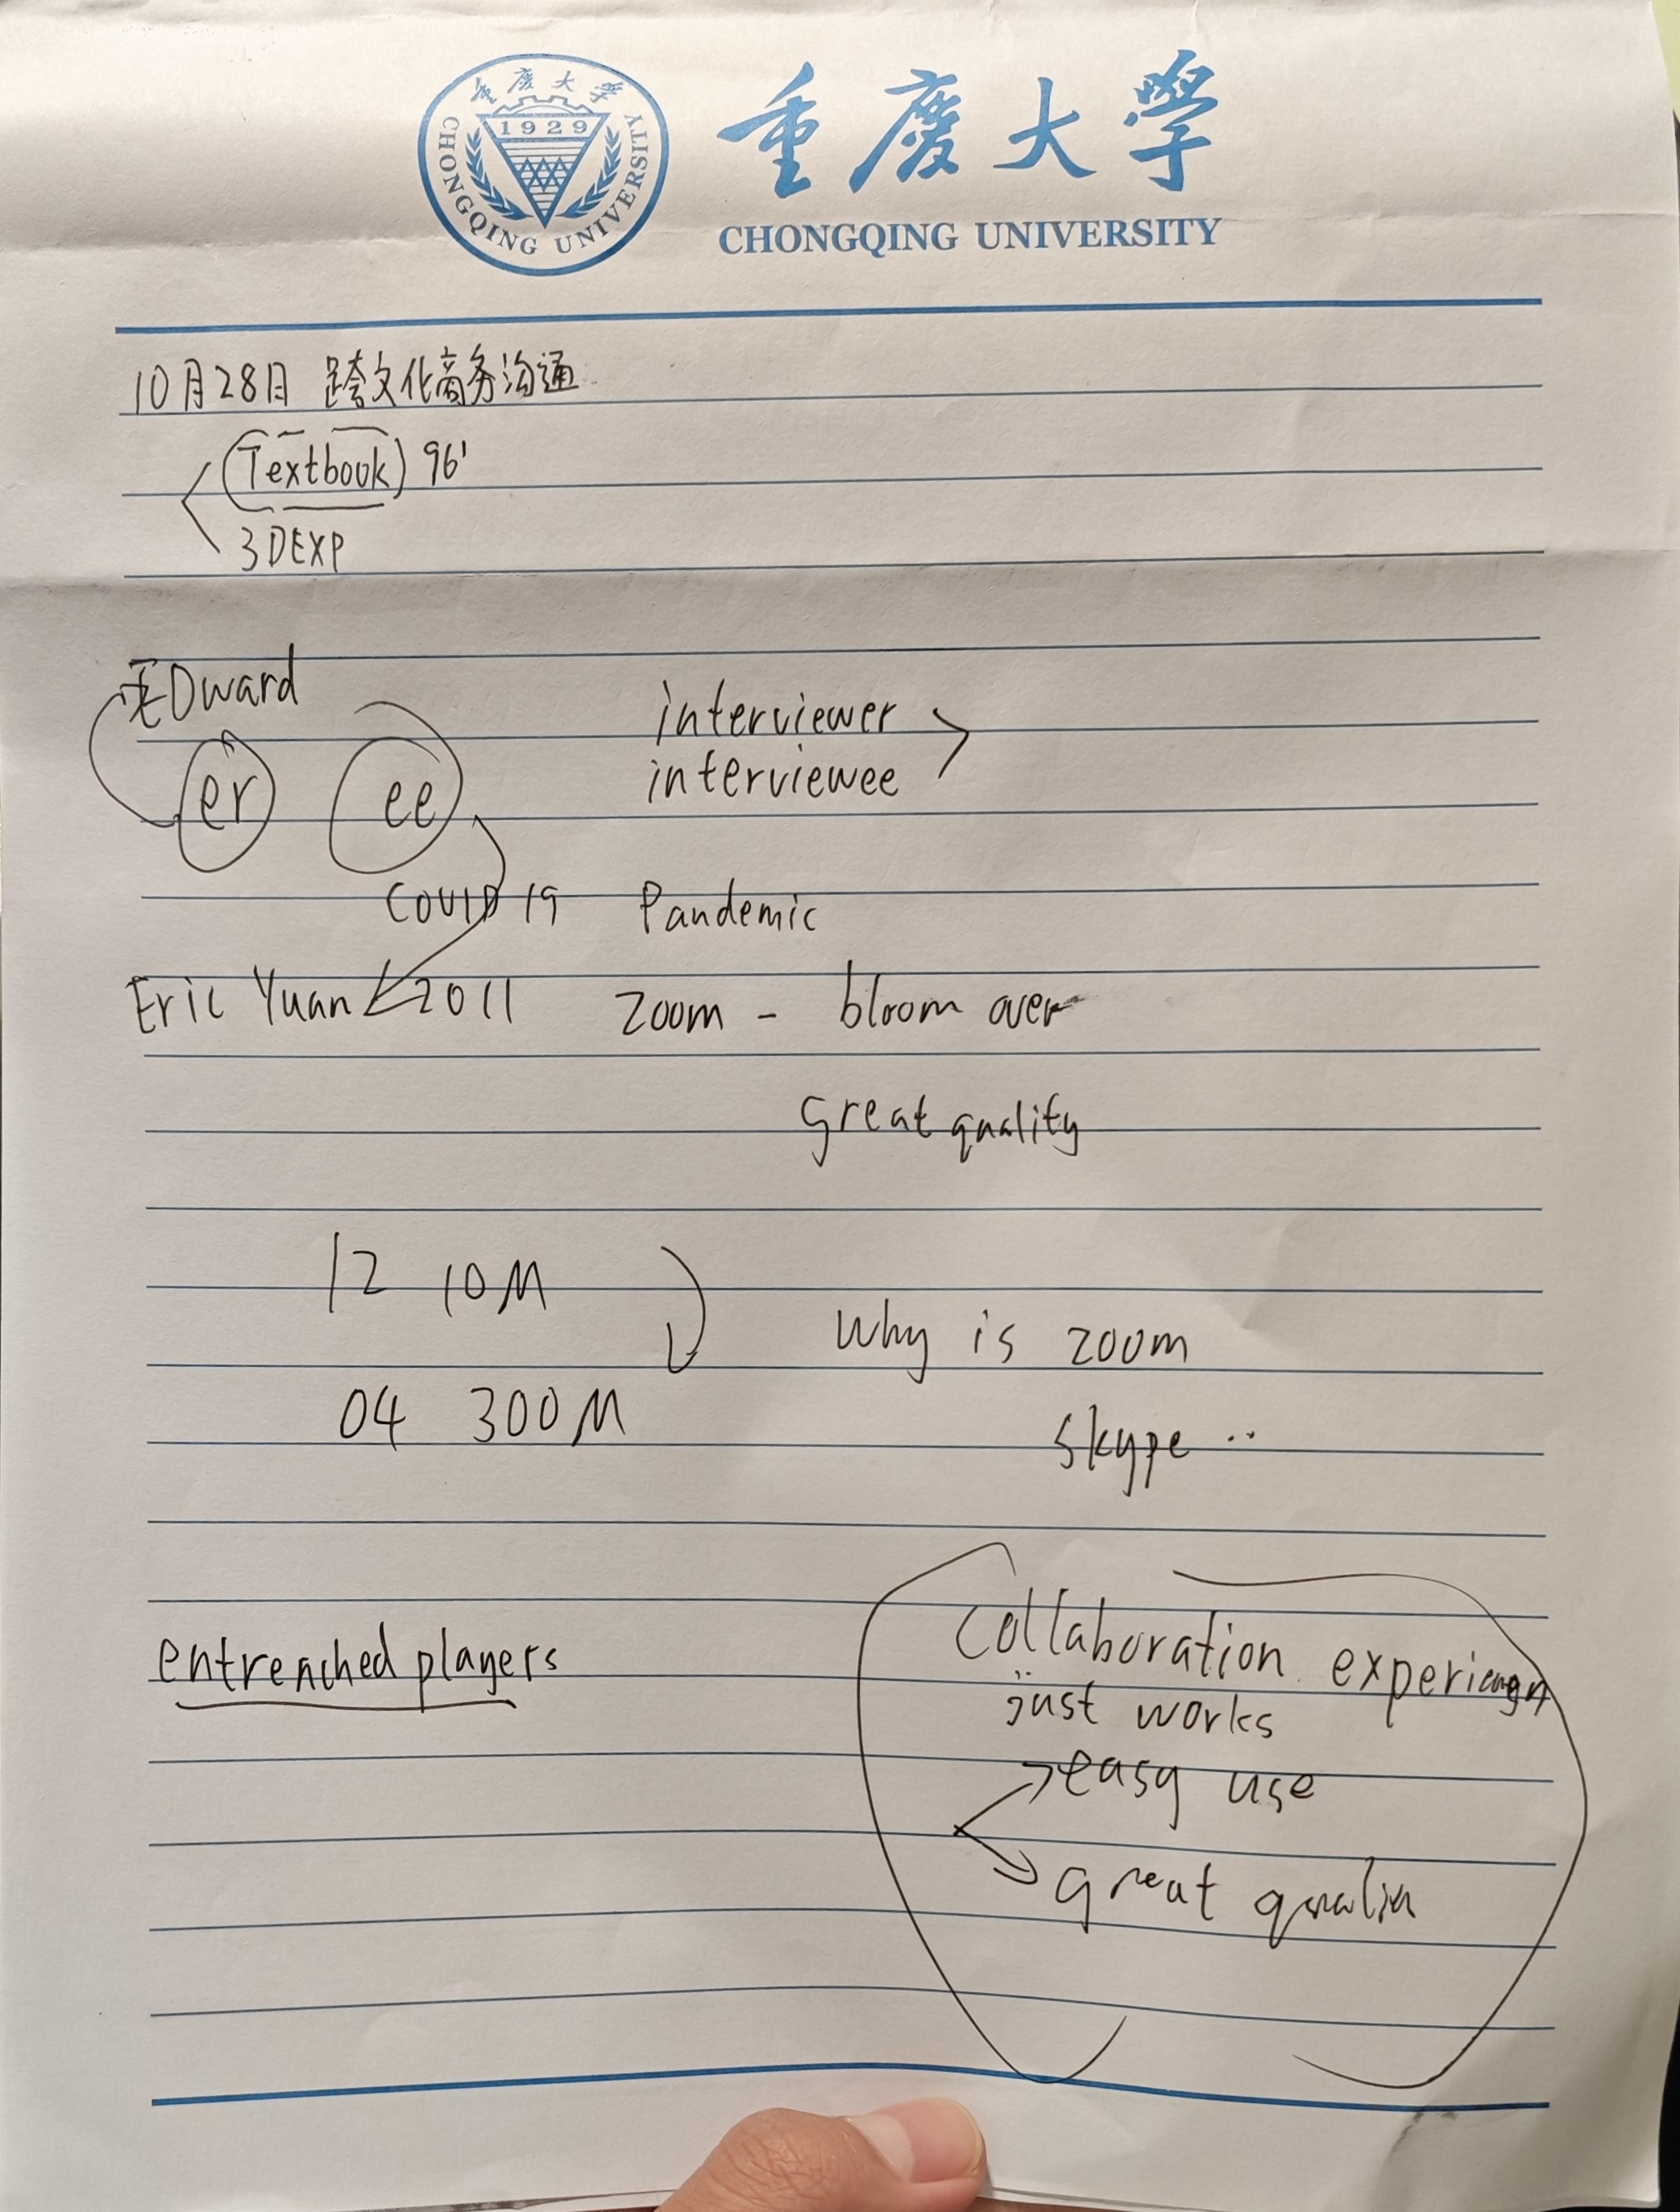 重慶大學
1929
CHONGQING UNIVERSITY
重慶大學
CHONGQING UNIVERSITY
10月28日 跨文化商务沟通
(Textbook) 96'
3DEXP
EDward
er ee
interviewer
interviewee
COVID 19 Pandemic
Eric Yuan 2011 Zoom - bloom over
great quality
12 10M
04 300M
Why is zoom
skype ..
entrenched players
Collaboration
just works
easy use
great